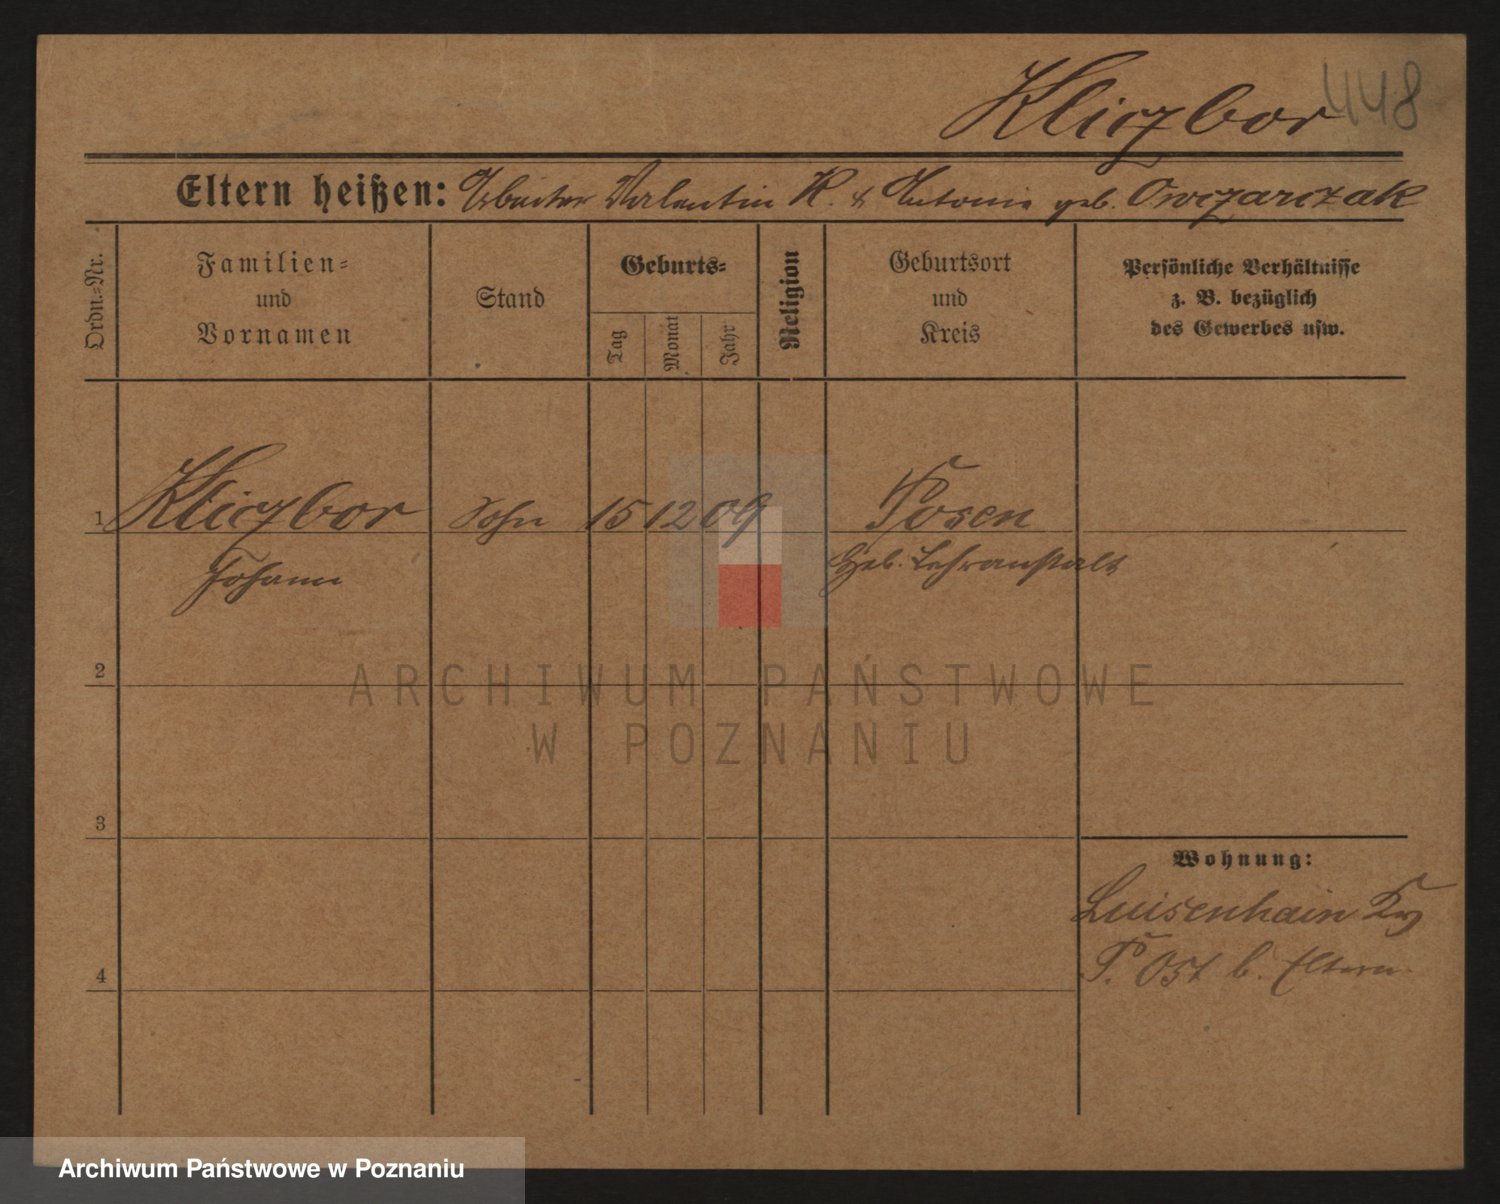 Kliczbor 448
Eltern heißen: Arbeiter Valentin K. & Antonie geb. Owczarczak
Ordn.-Nr.
Familien-
und
Vornamen
Stand
Geburts-
Tag
Monat
Jahr
Religion
Geburtsort
und
Kreis
Persönliche Verhältnisse
z. B. bezüglich
des Gewerbes usw.
1 Kliczbor Sohn 15 12 09 Posen
Johann Heb. Lehranstalt
2
ARCHIWUM PAŃSTWOWE
W POZNANIU
3
Wohnung:
Luisenhain Krs
P. Ost b. Eltern
4
Archiwum Państwowe w Poznaniu